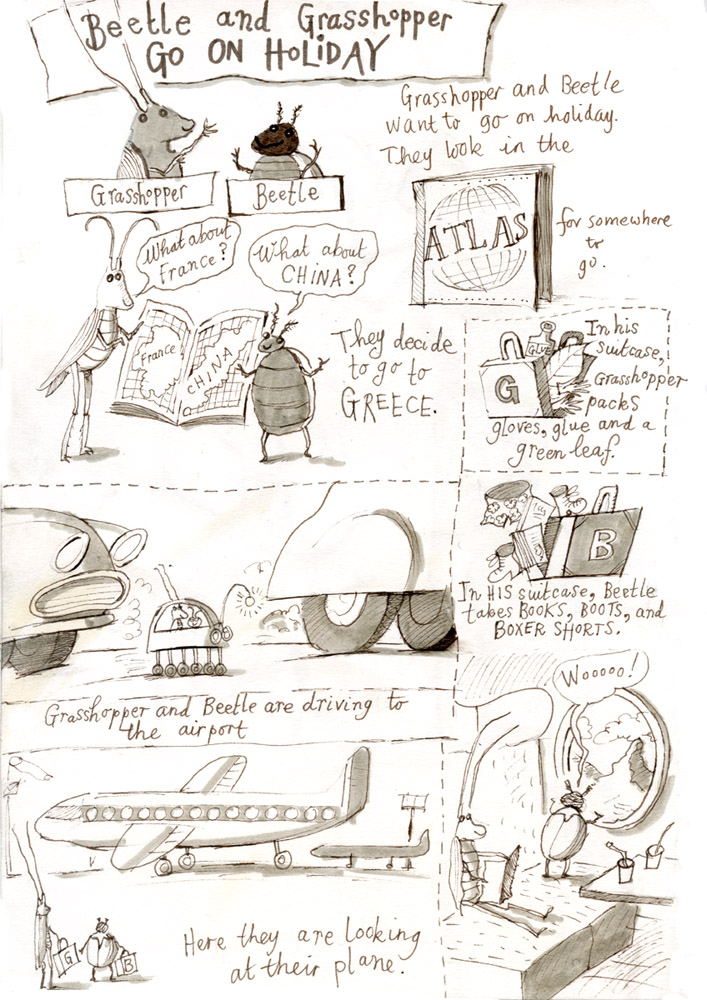 Beetle and Grasshopper
GO ON HOLIDAY
Grasshopper
Beetle
Grasshopper and Beetle
want to go on holiday.
They look in the
ATLAS
for somewhere
to
go.
What about
France?
What about
CHINA?
France
CHINA
They decide
to go to
GREECE.
GLUE
G
In his
suitcase,
Grasshopper
packs
gloves, glue and a
green leaf.
B
In HIS suitcase, Beetle
takes BOOKS, BOOTS, and
BOXER SHORTS.
Grasshopper and Beetle are driving to
the airport
G
B
Here they are looking
at their plane.
Wooooo!